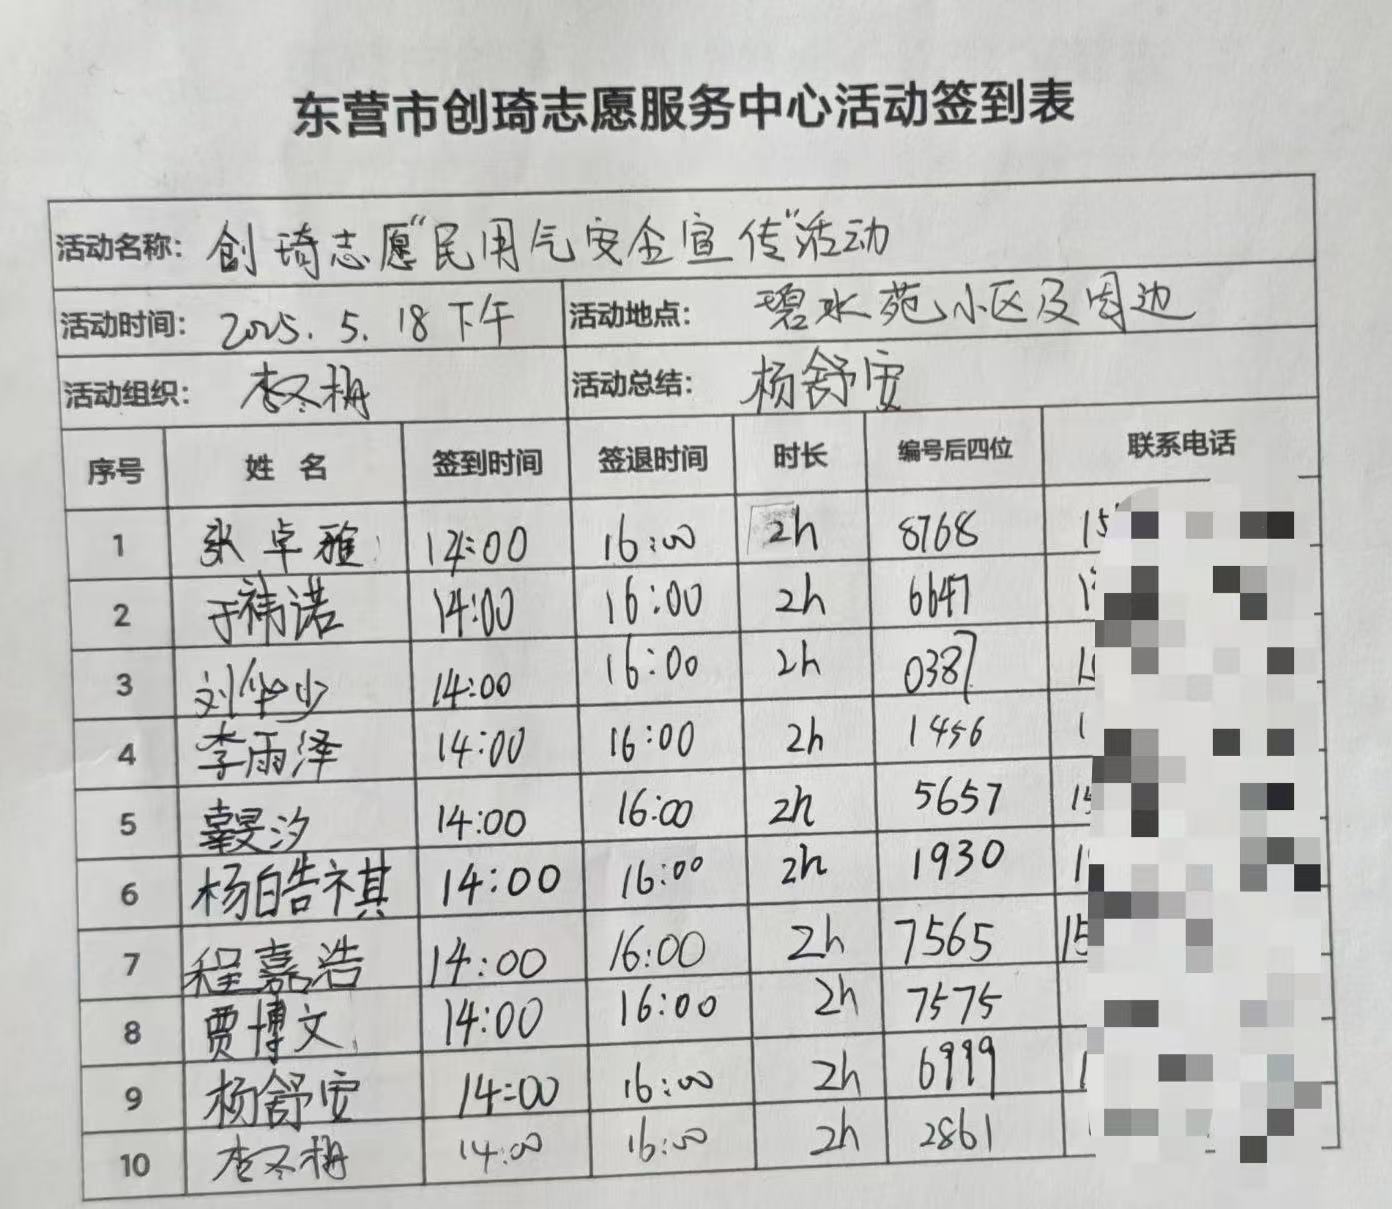 东营市创琦志愿服务中心活动签到表
活动名称: 创琦志愿"民用气安全宣传"活动
活动时间: 2025.5.18下午 活动地点: 碧水苑小区及周边
活动组织: 李冬梅 活动总结: 杨舒安
序号 姓 名 签到时间 签退时间 时长 编号后四位 联系电话
1 张卓雅 14:00 16:00 2h 8768 15
2 于祎诺 14:00 16:00 2h 6647 1
3 刘华少 14:00 16:00 2h 0387 1
4 李雨泽 14:00 16:00 2h 1456 1
5 14:00 16:00 2h 5657 15
6 杨皓祺 14:00 16:00 2h 1930 1
7 程嘉浩 14:00 16:00 2h 7565 15
8 贾博文 14:00 16:00 2h 7575
9 杨舒安 14:00 16:00 2h 6999 1
10 李冬梅 14:00 16:00 2h 2861